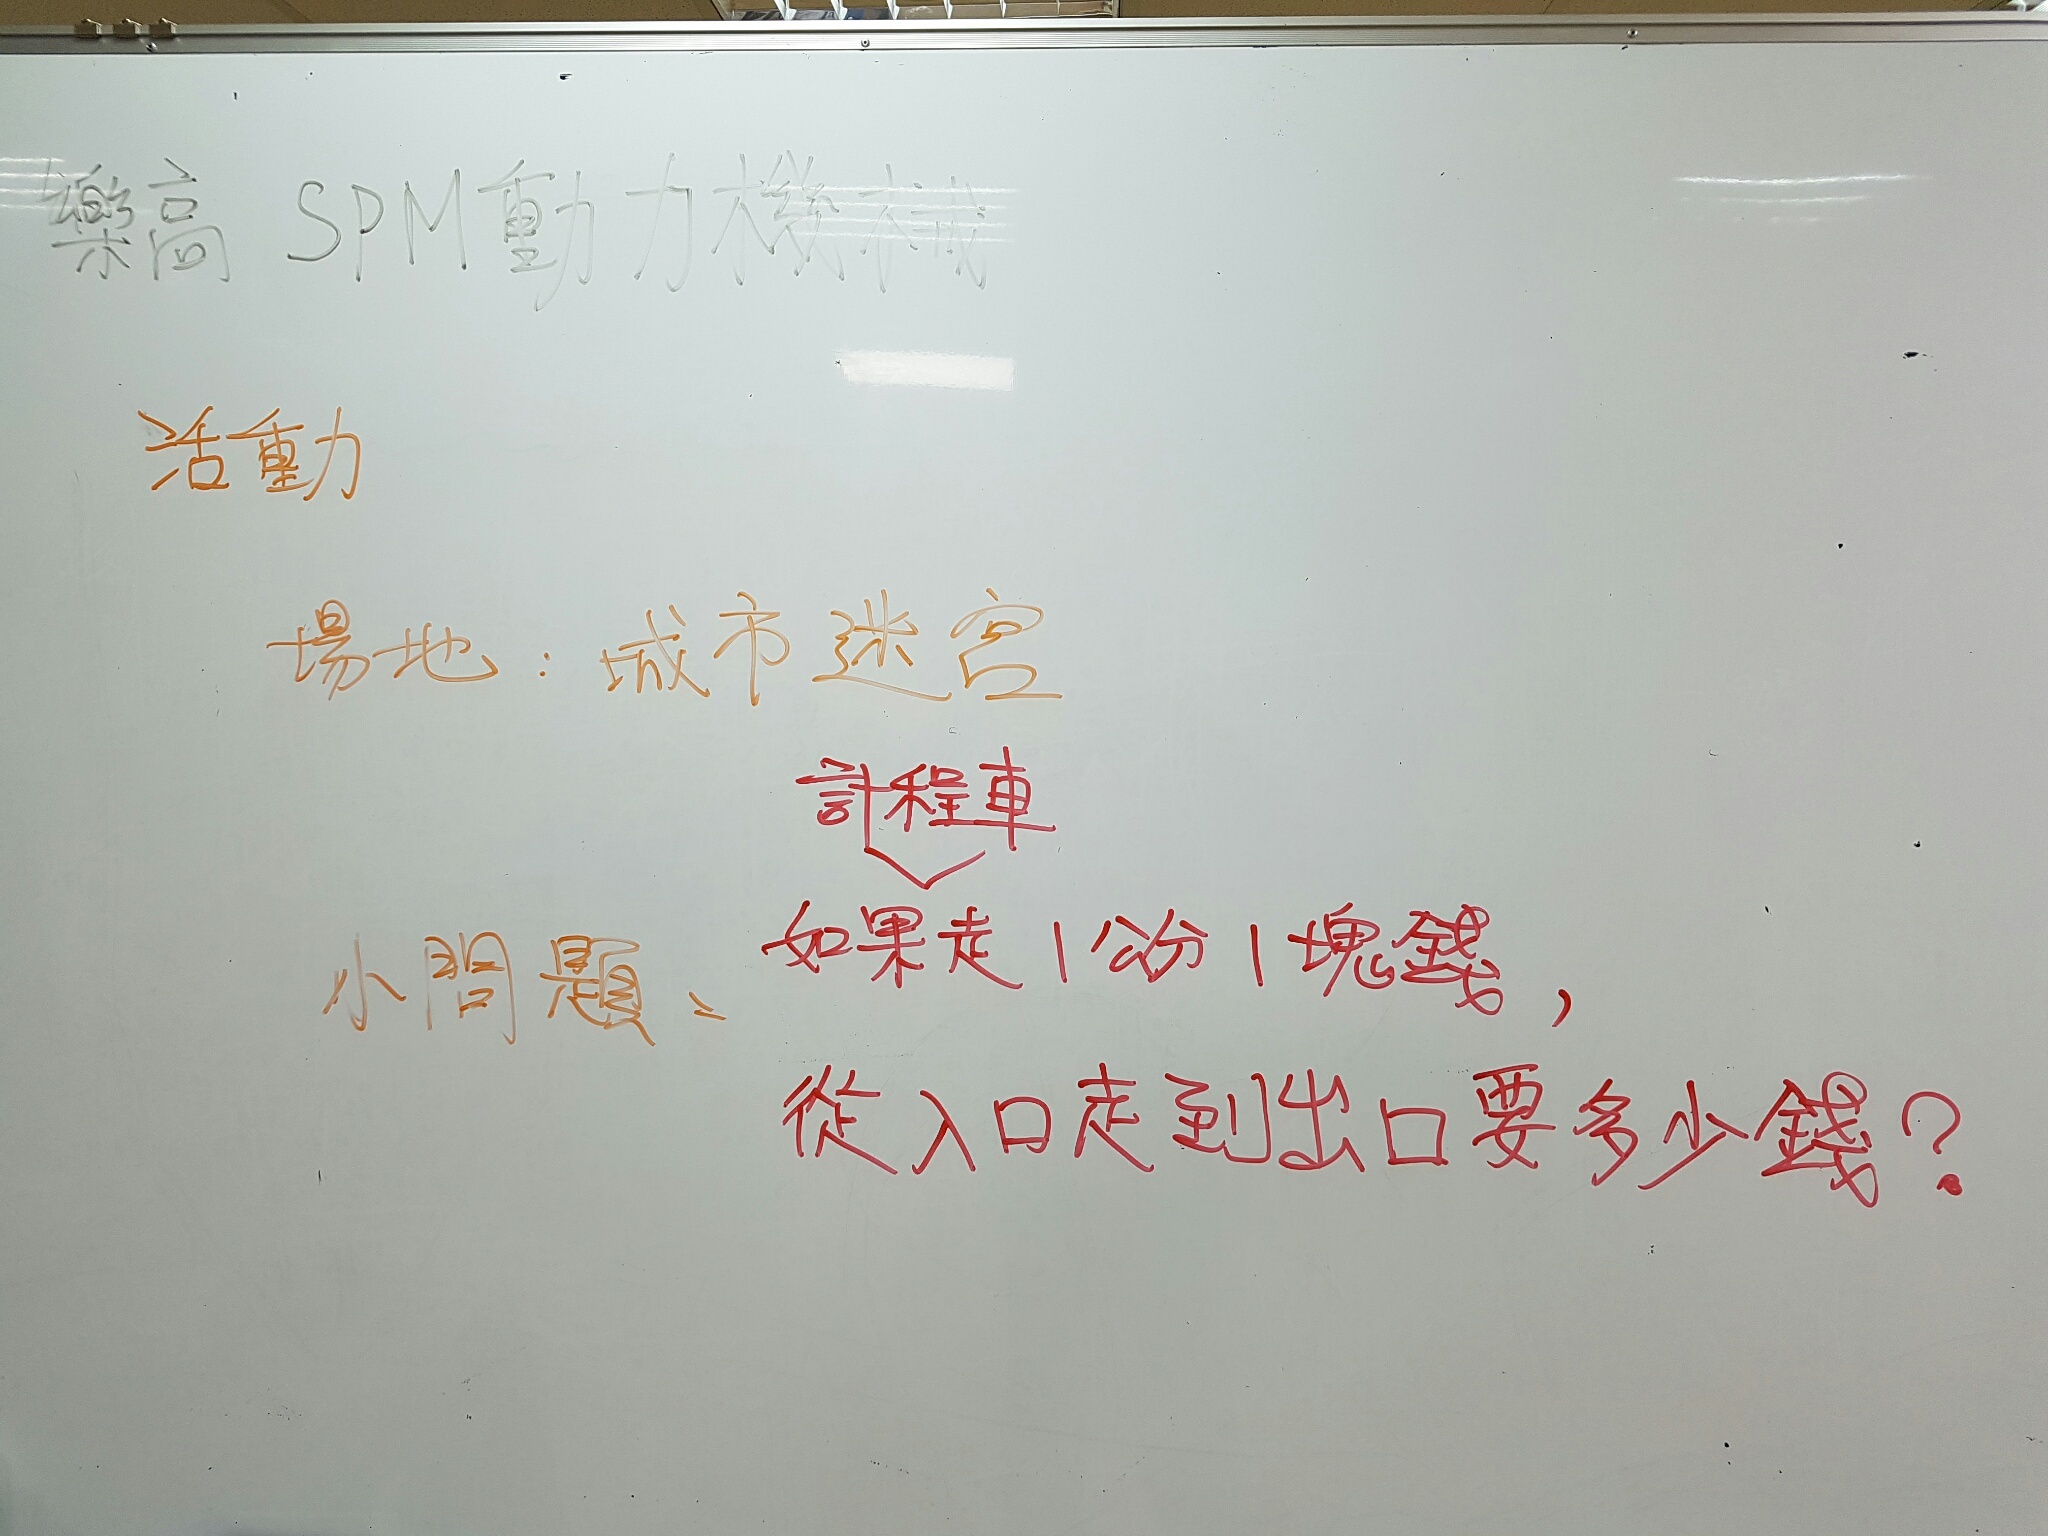 樂高 SPM動力機械
活動
場地：城市迷宮
計程車
小問題、如果走1公分1塊錢，
從入口走到出口要多少錢？